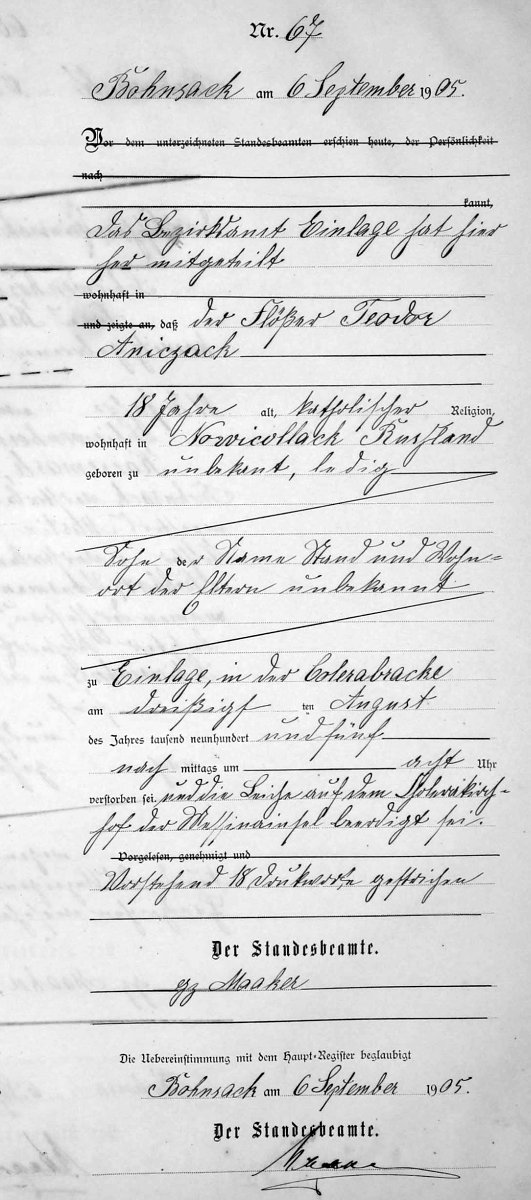 Nr. 67
Bohnsack am 6 September 1905.
Vor dem unterzeichneten Standesbeamten erschien heute, der Persönlichkeit
nach
kannt,
Das Bezirksamt Einlage hat hier
her mitgeteilt
wohnhaft in
und zeigte an, daß der Flößer Teodor
Aniczack
18 Jahre alt, katholischer Religion,
wohnhaft in Nowicollack Russland
geboren zu unbekant, ledig
Sohn der Name Stand und Wohn-
ort der Eltern unbekannt
zu Einlage, in der Colerabracke
am dreißigst ten August
des Jahres tausend neunhundert und fünf
nach mittags um acht Uhr
verstorben sei und die Leiche auf dem Cholerakirch-
hof der Messinainsel beerdigt sei.
Vorgelesen, genehmigt und
Vorstehend 18 Druckworte gestrichen
Der Standesbeamte.
gz Maaker
Die Uebereinstimmung mit dem Haupt-Register beglaubigt
Bohnsack am 6 September 1905.
Der Standesbeamte.